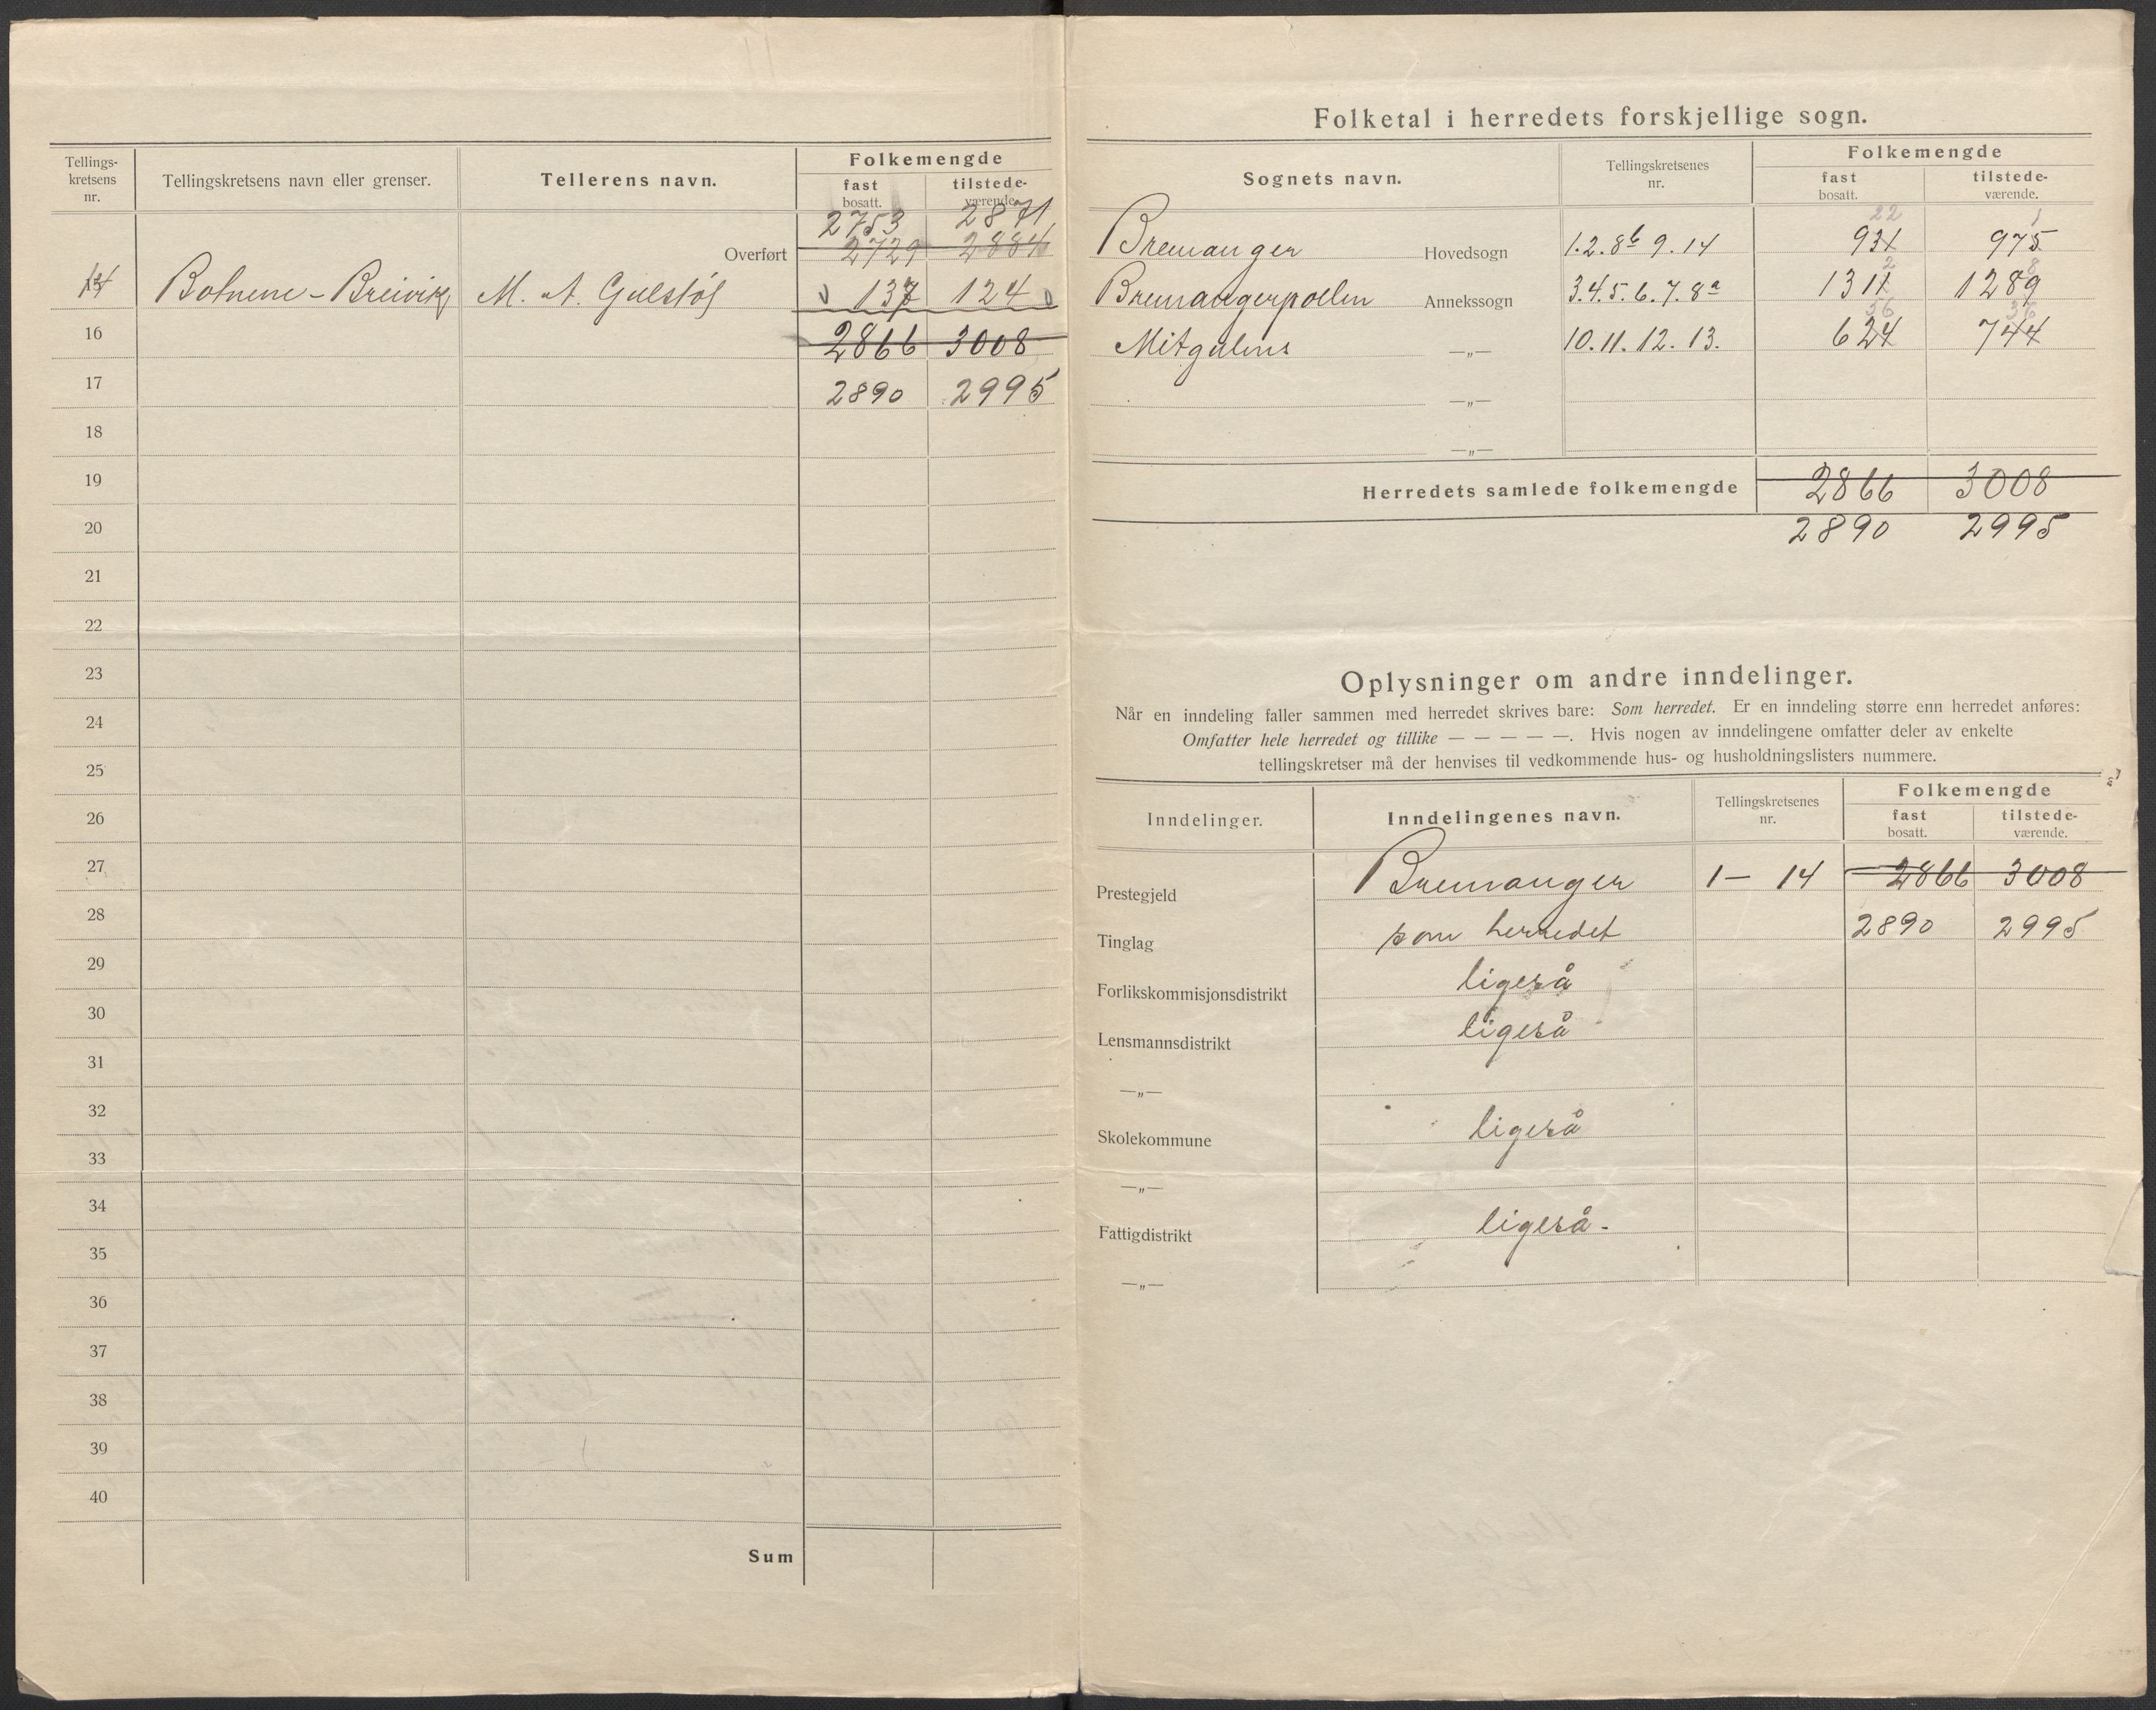 Tellings-kretsens nr. Tellingskretsens navn eller grenser. Tellerens navn. Folkemengde fast bosatt. tilstede-værende.
2753 2871
Overført 2729 2884
14 Botnene - Breivik M. A. Gulestøl 137 124
2866 3008
16
17 2890 2995
18
19
20
21
22
23
24
25
26
27
28
29
30
31
32
33
34
35
36
37
38
39
40
Sum
Folketal i herredets forskjellige sogn.
Sognets navn. Tellingskretsenes nr. Folkemengde fast bosatt. tilstede-værende.
22 1
Bremanger Hovedsogn 1. 2. 8b 9. 14 931 975
2 8
Bremangerpollen Annekssogn 3. 4. 5. 6. 7. 8a 1311 1289
56 36
Mitgulens —„— 10. 11. 12. 13. 624 744
—„—
—„—
Herredets samlede folkemengde 2866 3008
2890 2995
Oplysninger om andre inndelinger.
Når en inndeling faller sammen med herredet skrives bare: Som herredet. Er en inndeling større enn herredet anføres:
Omfatter hele herredet og tillike — — — — —. Hvis nogen av inndelingene omfatter deler av enkelte
tellingskretser må der henvises til vedkommende hus- og husholdningslisters nummere.
Inndelinger. Inndelingenes navn. Tellingskretsenes nr. Folkemengde fast bosatt. tilstede-værende.
Prestegjeld Bremanger 1 - 14 2866 3008
Tinglag som herredet 2890 2995
Forlikskommisjonsdistrikt ligeså
Lensmannsdistrikt ligeså
—„—
Skolekommune ligeså
—„—
Fattigdistrikt ligeså -
—„—